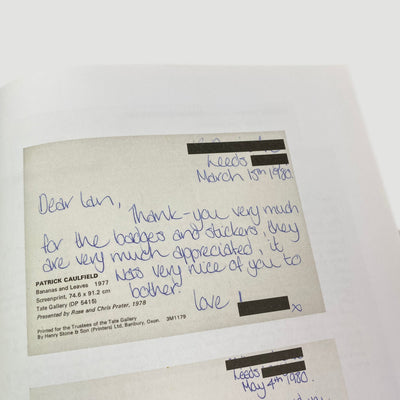 Leeds
March 15th 1980.
Dear Ian,
Thank-you very much
for the badges and stickers, they
are very much appreciated, it
was very nice of you to
bother.
love
x
PATRICK CAULFIELD
Bananas and Leaves 1977
Screenprint, 74.6 x 91.2 cm
Tate Gallery (DP 5415)
Presented by Rose and Chris Prater, 1978
Printed for the Trustees of the Tate Gallery
By Henry Stone & Son (Printers) Ltd, Banbury, Oxon. 3M1179
Leeds
May 4th 1980.